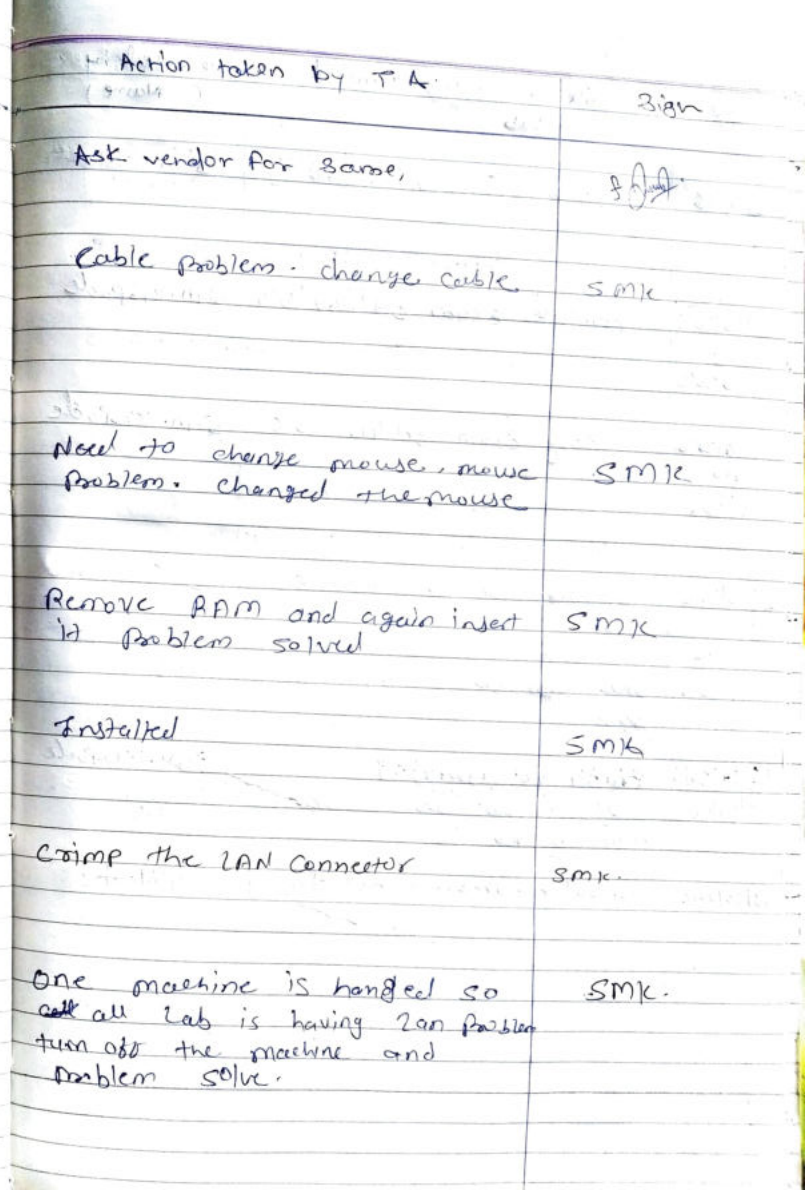 Action taken by T A.
Sign
Ask vendor for same,
Cable problem. change cable
SMK
Need to change mouse, mouse
SMK
problem. Changed the mouse
Remove RAM and again insert
SMK
it problem solved
Installed
SMK
Crimp the LAN Connector
SMK.
One machine is hanged so
SMK.
all Lab is having Lan problem
turn off the machine and
problem solve.